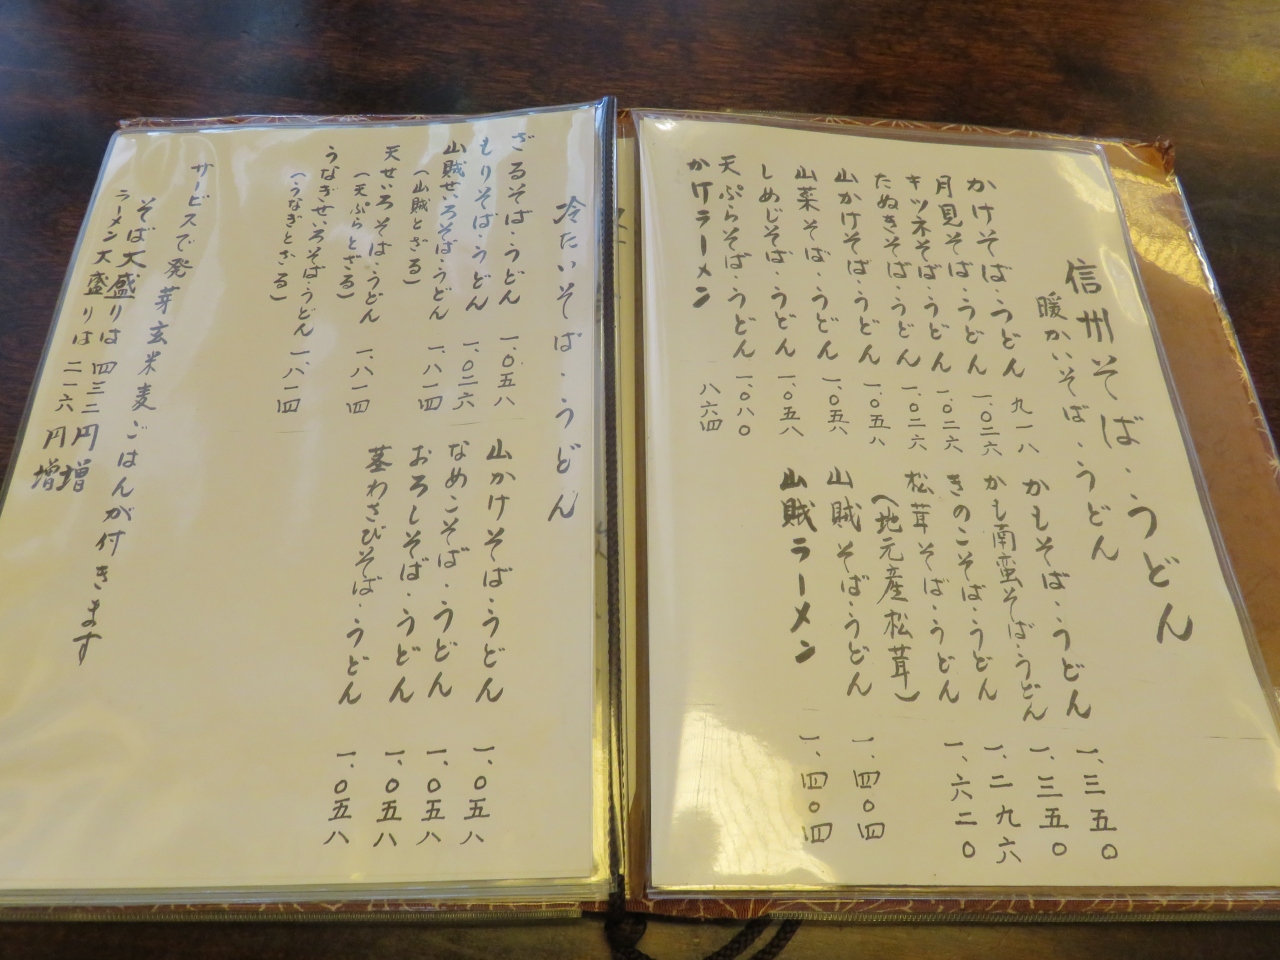 信州そば・うどん
暖かいそば・うどん
かけそば・うどん 九一八
月見そば・うどん 一、〇二六
キツネそば・うどん 一、〇二六
たぬきそば・うどん 一、〇二六
山かけそば・うどん 一、〇五八
山菜そば・うどん 一、〇五八
しめじそば・うどん 一、〇五八
天ぷらそば・うどん 一、〇八〇
かけラーメン 八六四
かもそば・うどん 一、三五〇
かも南蛮そば・うどん 一、三五〇
きのこそば・うどん 一、二九六
松茸そば・うどん 一、六二〇
(地元産松茸)
山賊そば・うどん 一、四〇四
山賊ラーメン 一、四〇四
冷たいそば・うどん
ざるそば・うどん 一、〇五八
もりそば・うどん 一、〇二六
山賊せいろそば・うどん 一、八一四
(山賊とざる)
天せいろそば・うどん 一、八一四
(天ぷらとざる)
うなぎせいろそば・うどん 一、八一四
(うなぎとざる)
山かけそば・うどん 一、〇五八
なめこそば・うどん 一、〇五八
おろしそば・うどん 一、〇五八
茎わさびそば・うどん 一、〇五八
サービスで発芽玄米麦ごはんが付きます
そば大盛りは四三二円増
ラーメン大盛りは二一六円増